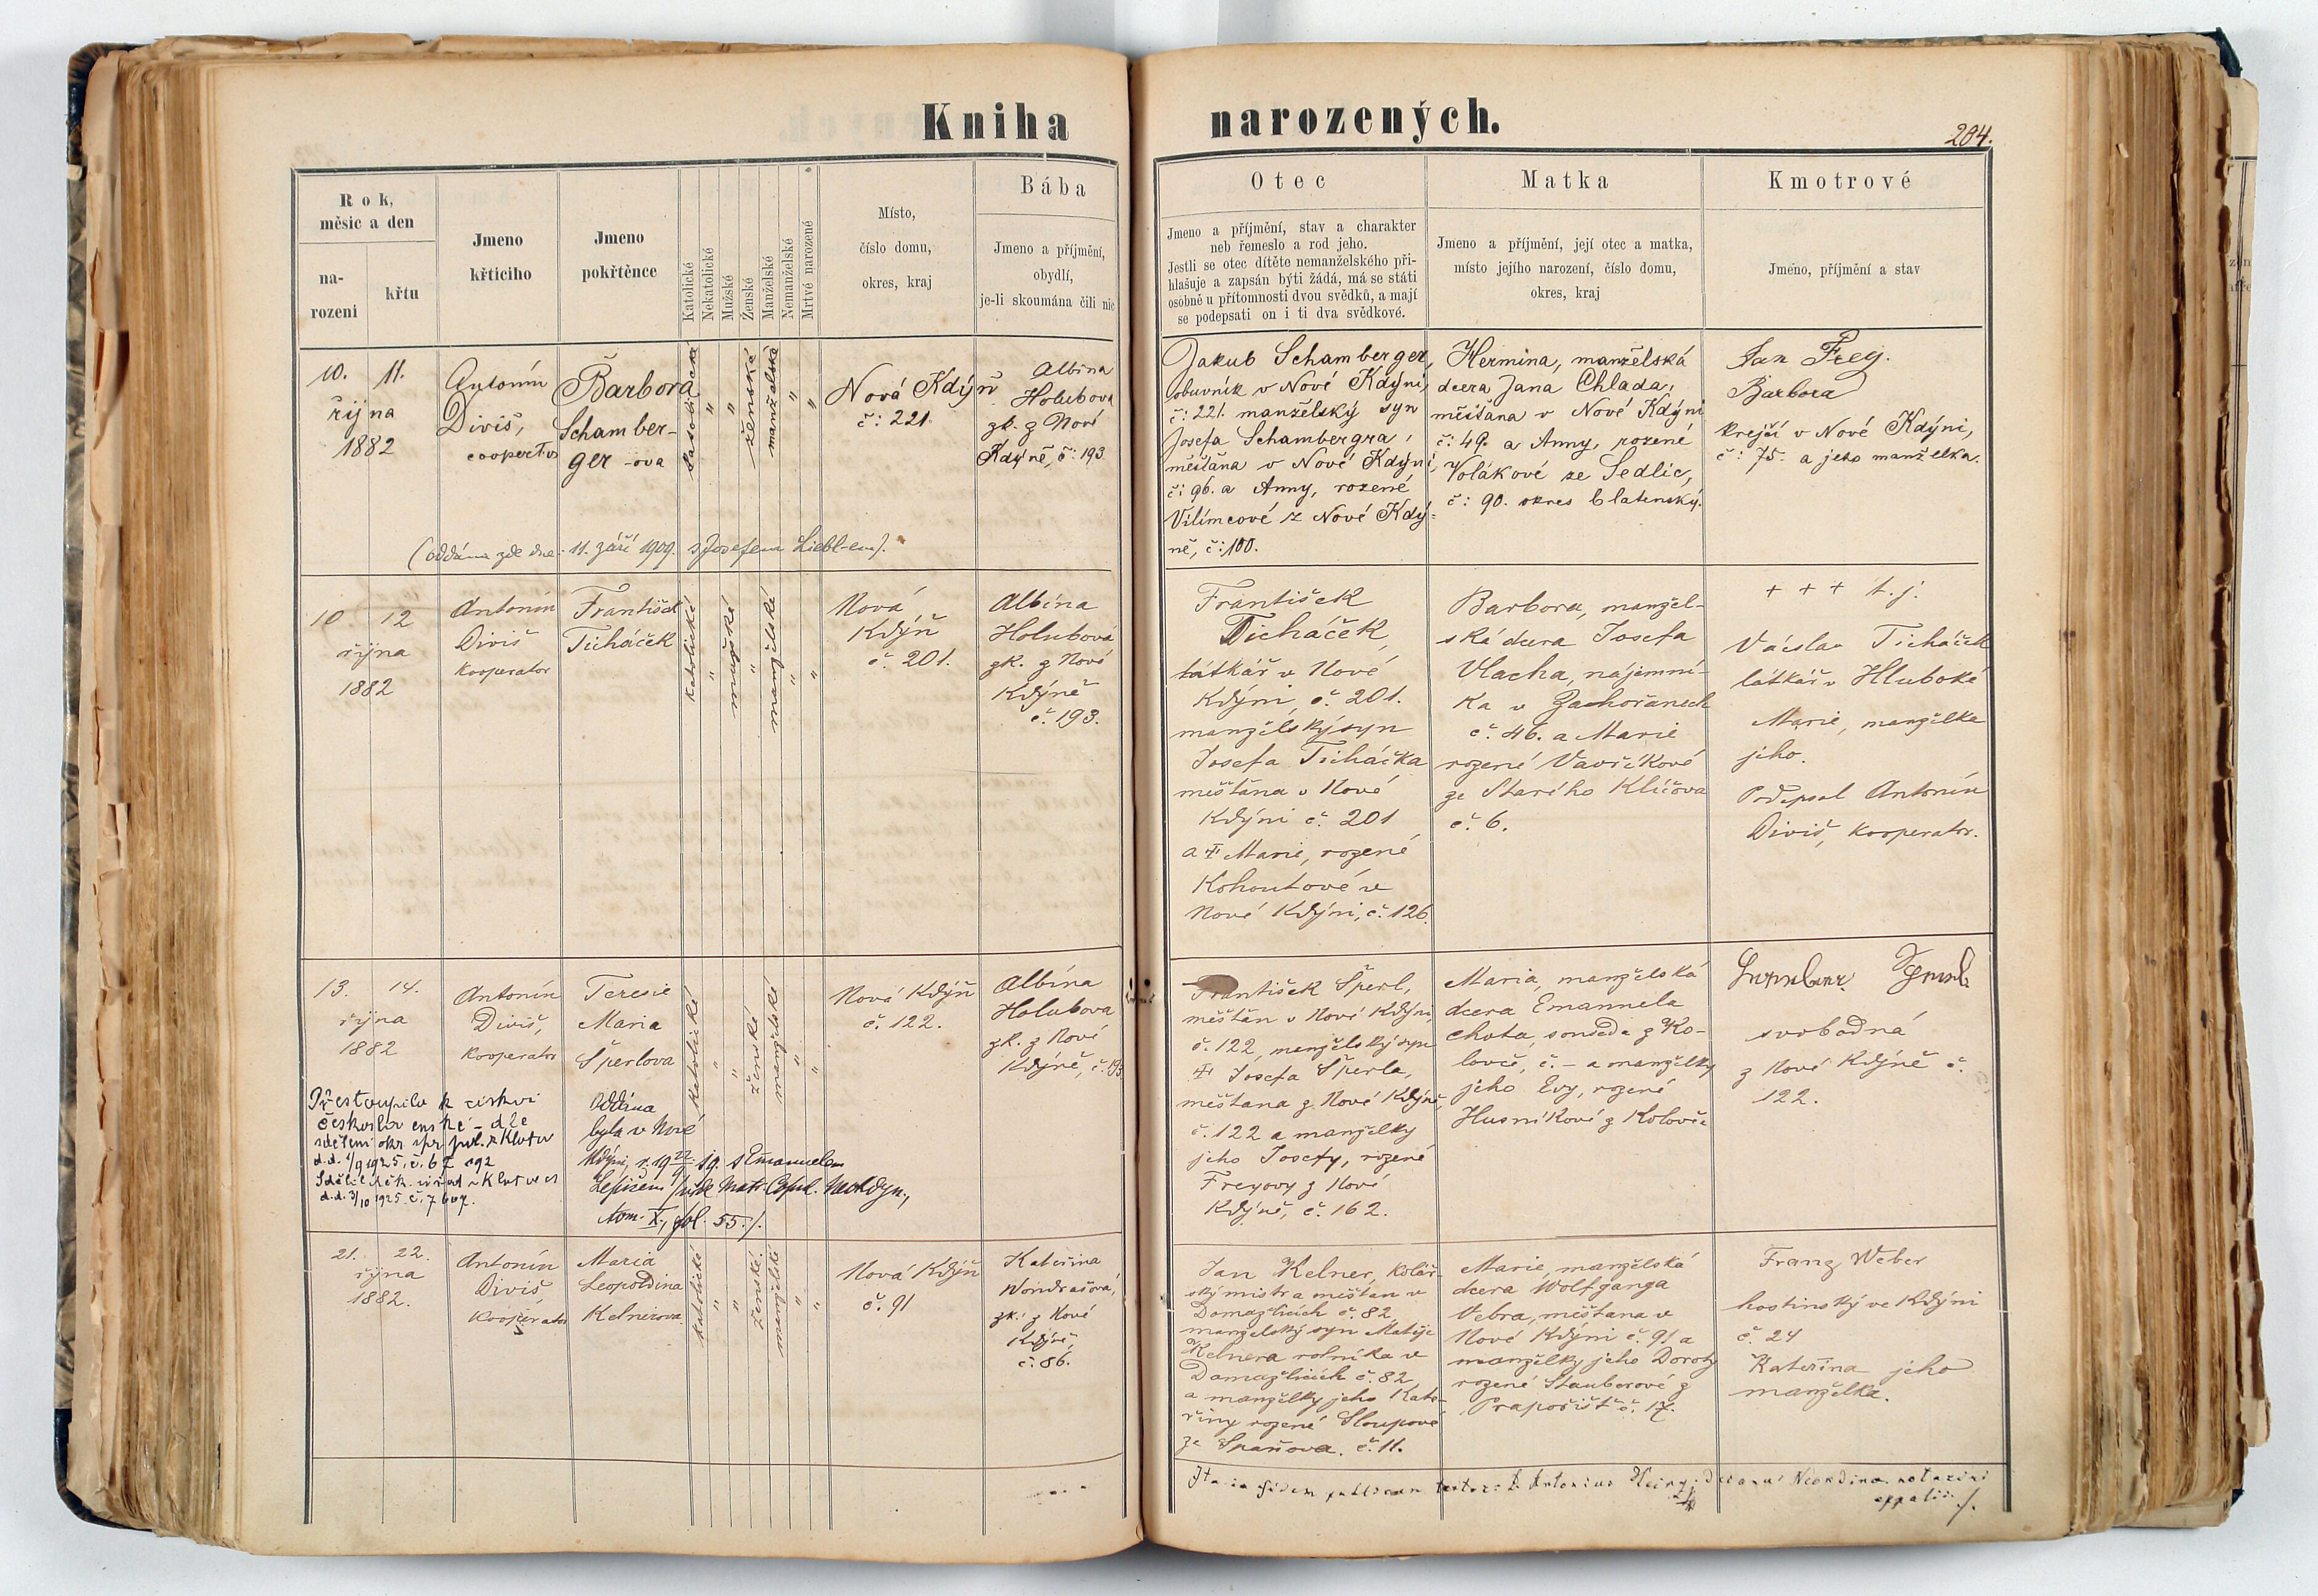 Kniha narozených.
204.
Rok, měsíc a den
narození
křtu
Jmeno křticího
Jmeno pokřtěnce
Katolické
Nekatolické
Mužské
Ženské
Manželské
Nemanželské
Mrtvě narozené
Místo,
číslo domu,
okres, kraj
Bába
Jmeno a příjmění,
obydlí,
je-li skoumána čili nic
Otec
Jmeno a příjmění, stav a charakter
neb řemeslo a rod jeho.
Jestli se otec dítěte nemanželského při-
hlašuje a zapsán býti žádá, má se státi
osobně u přítomnosti dvou svědků, a mají
se podepsati on i ti dva svědkové.
Matka
Jmeno a příjmění, její otec a matka,
místo jejího narození, číslo domu,
okres, kraj
Kmotrové
Jmeno, příjmění a stav
10. 11.
října
1882
Antonín
Diviš,
Barbora
Schamber-
ger-ova
katolické
"
"
ženské
manželské
"
"
Nová Kdýň
č: 221.
Albina
Holubova
zk. z Nové
Kdýně, č: 193.
Jakub Schamberger,
obuvník v Nové Kdýni,
č: 221. manželský syn
Josefa Schambergra,
měšťana v Nové Kdýni,
č: 96. a Anny, rozené
Vilímcové z Nové Kdý-
ně, č: 100.
Hermina, manželská
dcera Jana Chlada,
měšťana v Nové Kdýni
č: 49. a Anny, rozené
Volákové ze Sedlic,
č: 90. okres blatenský.
Jan Freg.
Barbora
krejčí v Nové Kdýni,
č: 75. a jeho manželka.
(oddána zde dne: 11. září 1909. s Josefem Liebl-em).
10. 12
října
1882
Antonín
Diviš
kooperator
František
Ticháček
katolické
"
mužské
"
manželské
"
"
Nová
Kdýň
č. 201.
Albína
Holubová
zk. z Nové
Kdýně
č. 193.
František
Ticháček,
látkář v Nové
Kdýni, č. 201.
manželský syn
Josefa Ticháčka
měšťana v Nové
Kdýni č. 201
a † Marie, rozené
Kohoutové z
Nové Kdýni, č. 126.
Barbora, manžel-
ská dcera Josefa
Vlacha, nájemní-
ka v Zahořanech
č. 46. a Marie
rozené Vavříkové
ze Starého Klíčova
č. 6.
+ + + t. j.
Václav Ticháček
látkář v Hluboké
Marie, manželka
jeho.
Podepsal Antonín
Diviš, kooperator.
13. 14.
října
1882
Antonín
Diviš,
kooperator
Teresie
Maria
Šperlova
katolické
"
"
ženské
manželské
"
"
Nová Kdýň
č. 122.
Albína
Holubova
zk. z Nové
Kdýně, č. 193
František Šperl,
měšťan v Nové Kdýni,
č. 122, manželský syn
† Josefa Šperla,
měšťana z Nové Kdýně,
č. 122 a manželky
jeho Josefy, rozené
Freyovy z Nové
Kdýně, č. 162.
Maria, manželská
dcera Emanuela
Chota, souseda z Ko-
lovče, č. – a manželky
jeho Evy, rozené
Husníkové z Kolovče
svobodná
z Nové Kdýně č.
122.
Přestoupila k církvi
československé – dle
sdělení okr. spr. pol. z Klatov
Oddána
byla v Nové
Kdýni, s Emanuelem
Tom. X., fol. 55./.
21. 22.
října
1882.
Antonín
Diviš
kooperator
Maria
Leopoldina
Kelnerova
katolické
"
"
ženské
manželské
"
"
Nová Kdýň
č. 91
Kateřina
Wondrašová,
zk. z Nové
Kdýně,
č. 86.
Jan Kelner, kolář-
ský mistr a měšťan v
Domažlicích č. 82,
manželský syn Matěje
Kelnera rolníka v
Domažlicích č. 82,
a manželky jeho Kate-
řiny rozené Sloupové
ze Spaňova. č. 11.
Marie, manželská
dcera Wolfganga
Vebra, měšťana v
Nové Kdýni č. 91 a
manželky jeho Doroty
rozené Stauberové z
Prapořišť č. 17.
Franz Weber
hostinský ve Kdýni
č. 24
Kateřina jeho
manželka.
Ita in fidem publicam testor: Antonius